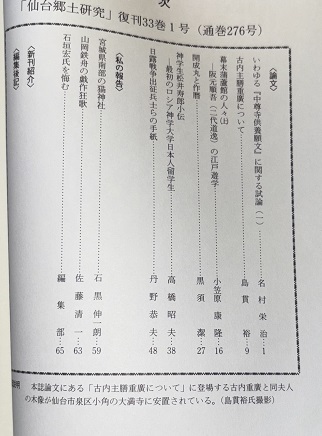 次
「仙台郷土研究」復刊33巻1号(通巻276号)
〈論文〉
いわゆる『中尊寺供養願文』に関する試論(一)……名村栄治…1
古内主膳重廣について……島貫裕…9
幕末蒲蓮館の人々(上)
―阪元順吾(二代道逸)の江戸遊学……小笠原康隆…16
開成丸と作暦……黒須潔…27
神学生松井寿郎小伝
―最初のロシア神学大学日本人留学生……高橋昭夫…38
日露戦争出征兵士らの手紙……丹野恭夫…48
〈私の報告〉
宮城県南部の猫神社……石黒伸一朗…59
山岡鉄舟の戯作狂歌……佐藤清一…63
石垣宏氏を悼む……編集部…65
〈新刊紹介〉
〈編集後記〉
説明 本誌論文にある「古内主膳重廣について」に登場する古内重廣と同夫人
の木像が仙台市泉区小角の大満寺に安置されている。(島貫裕氏撮影)